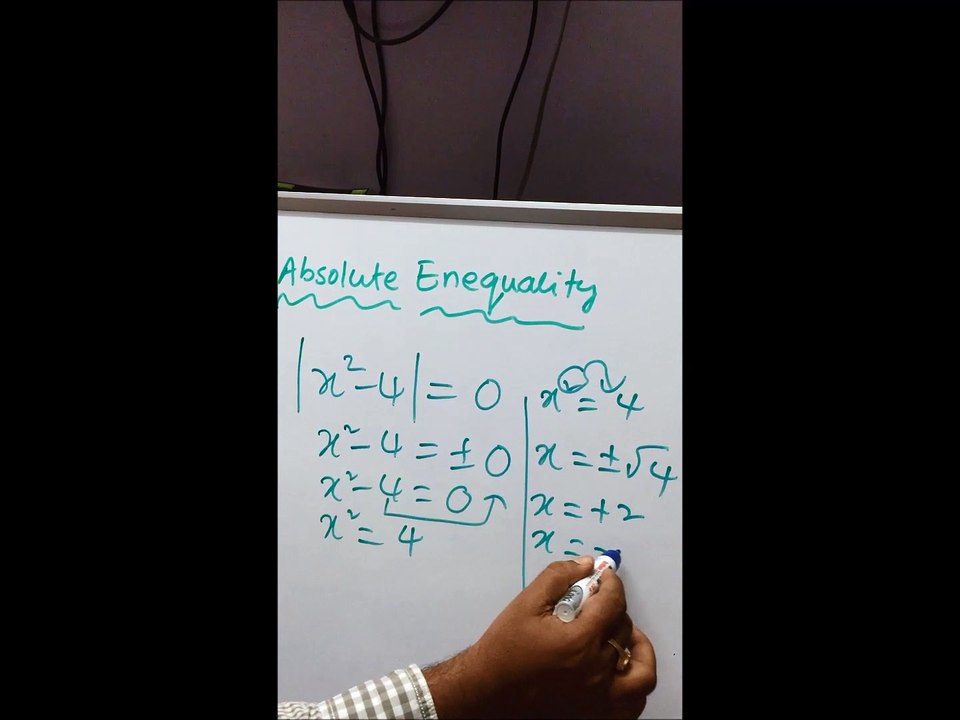 Absolute Enequality
|x²-4| = 0
x²-4 = ±0
x²-4 = 0
x² = 4
x² = 4
x = ±√4
x = +2
x = -